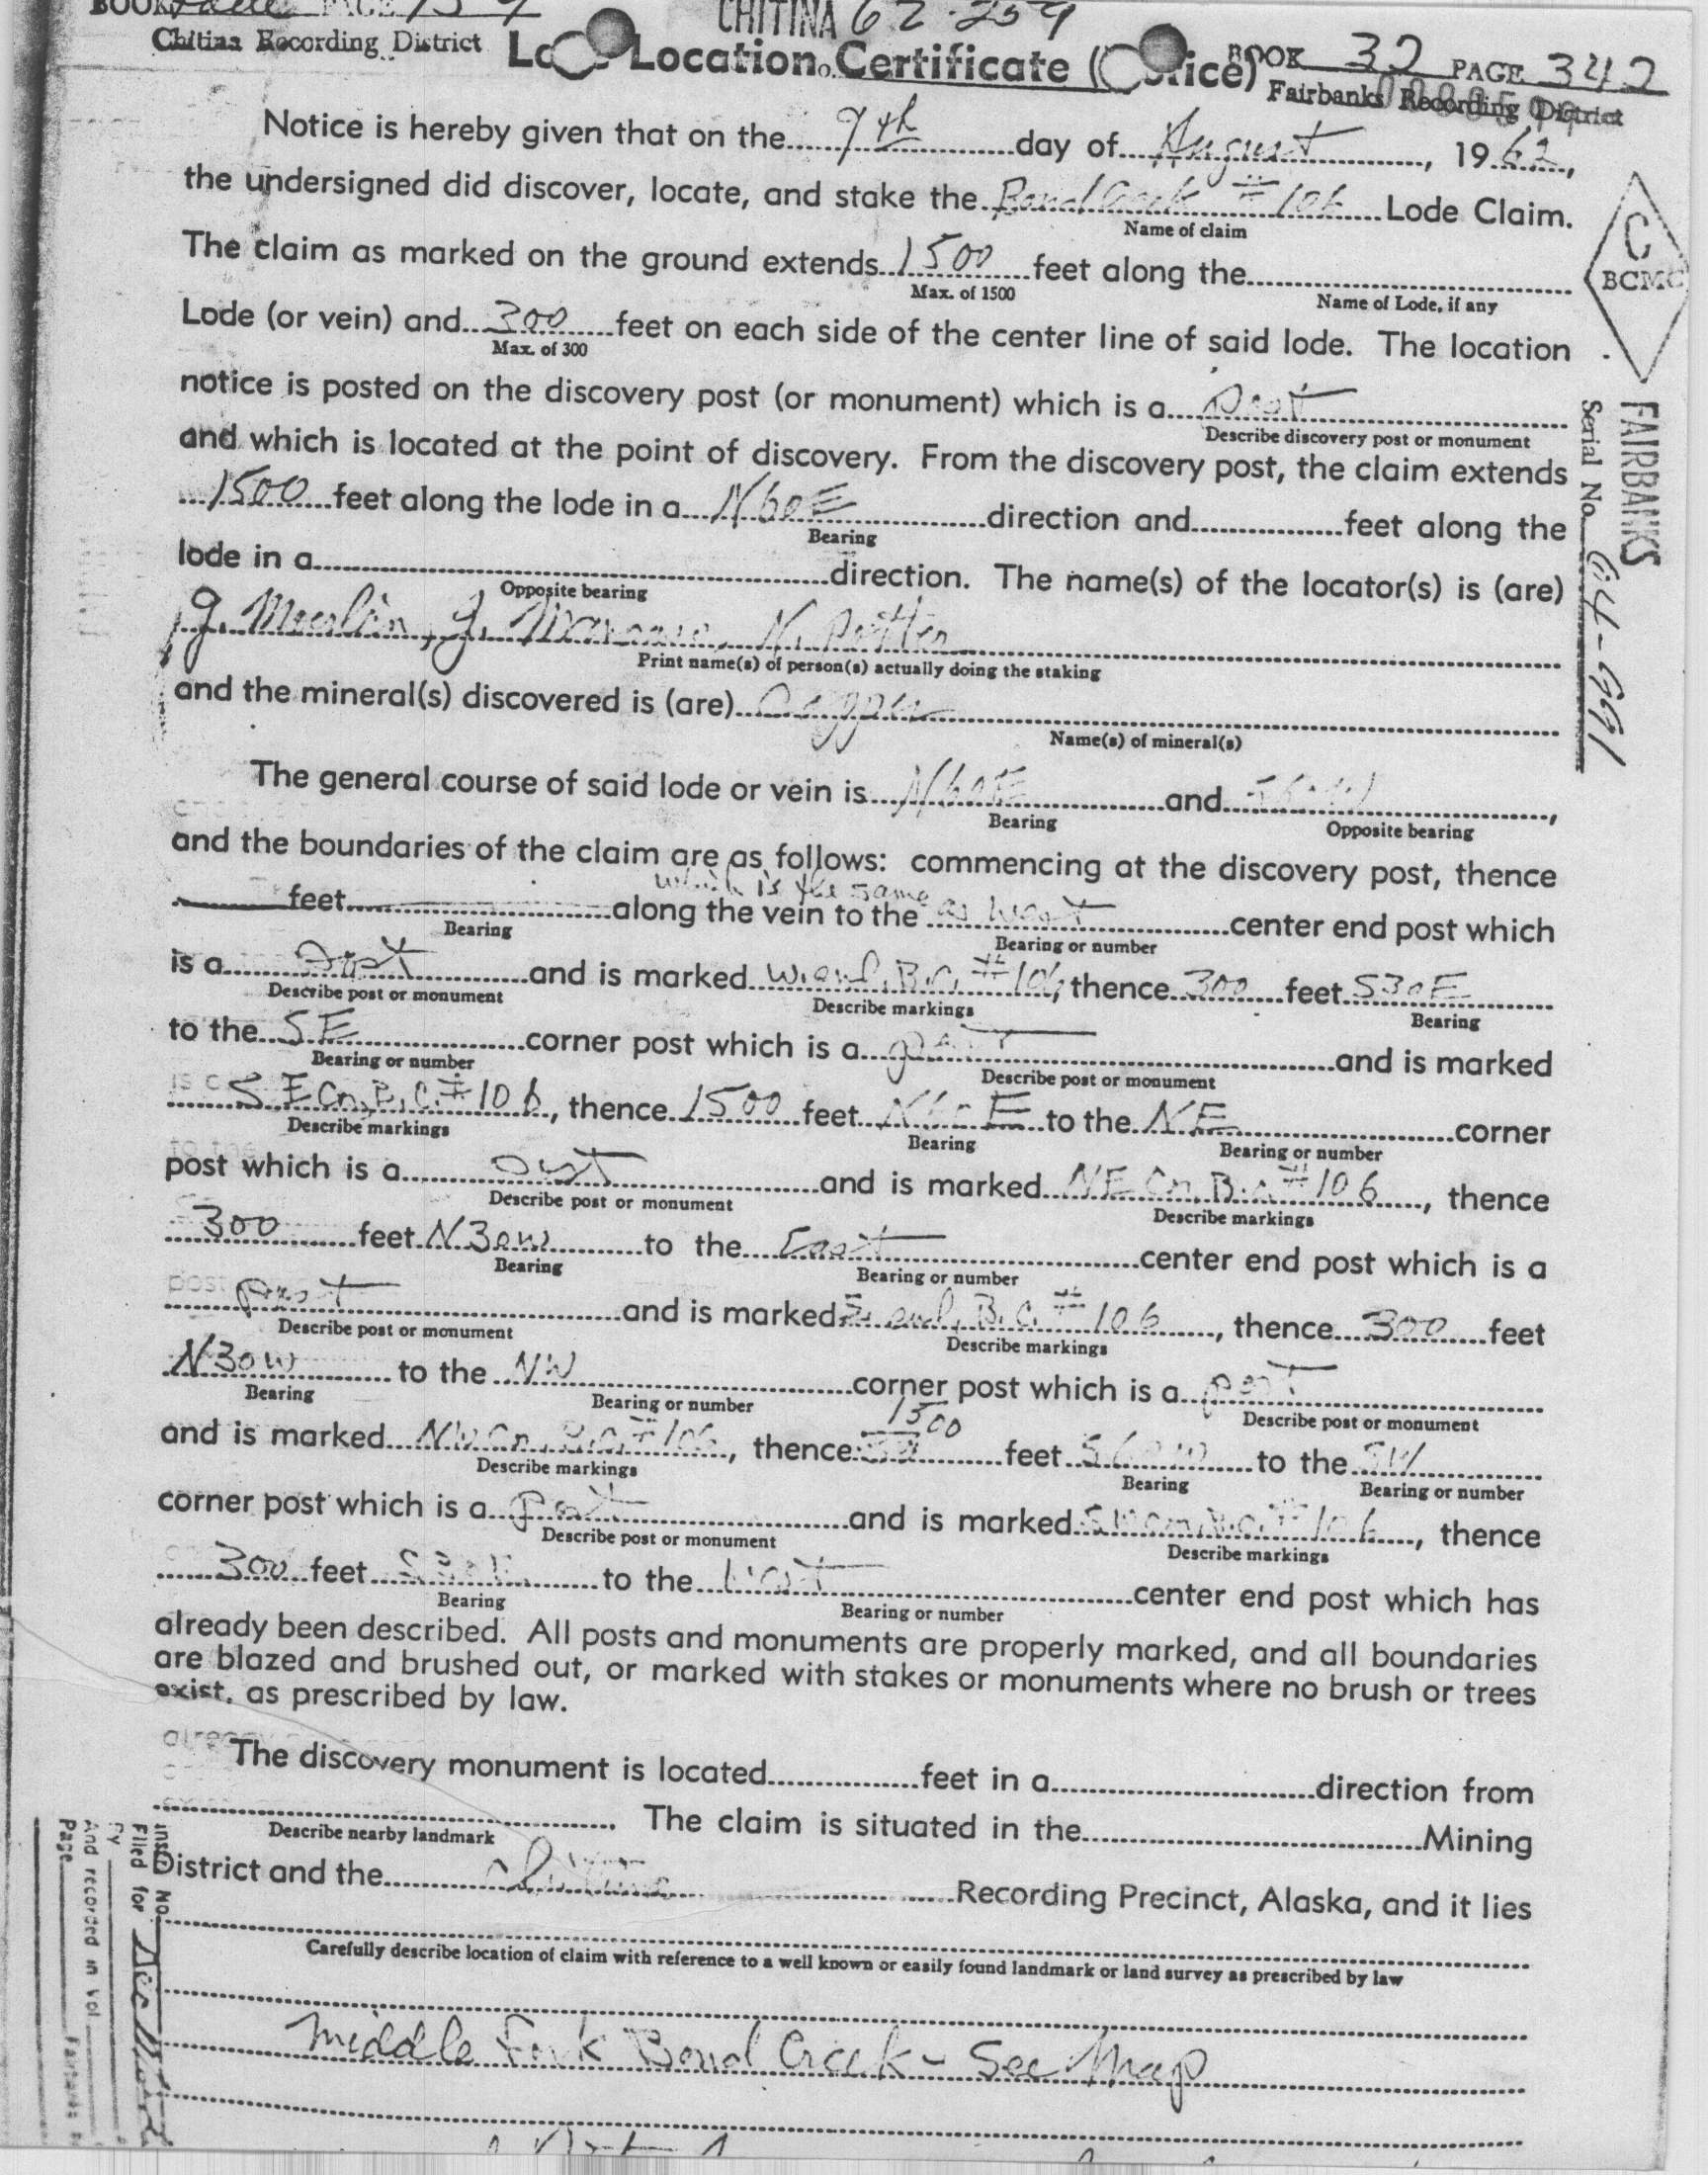 BOOK PAGE 159
CHITINA 62-259
Chitina Recording District
Location Certificate (
BOOK 32 PAGE 342
Fairbanks Recording District
Notice is hereby given that on the 9th day of August, 1962,
the undersigned did discover, locate, and stake the Bond Creek #106 Lode Claim.
Name of claim
The claim as marked on the ground extends 1500 feet along the
Max. of 1500 Name of Lode, if any
Lode (or vein) and 300 feet on each side of the center line of said lode. The location
Max. of 300
notice is posted on the discovery post (or monument) which is a Post
Describe discovery post or monument
and which is located at the point of discovery. From the discovery post, the claim extends
1500 feet along the lode in a N60E direction and feet along the
Bearing
lode in a direction. The name(s) of the locator(s) is (are)
Opposite bearing
J. J. N.
Print name(s) of person(s) actually doing the staking
and the mineral(s) discovered is (are) Copper
Name(s) of mineral(s)
The general course of said lode or vein is N60E and S60W,
Bearing Opposite bearing
and the boundaries of the claim are as follows: commencing at the discovery post, thence
which is the same
feet along the vein to the as West center end post which
Bearing Bearing or number
is a Post and is marked W. end, B.C. #106, thence 300 feet S30E
Describe post or monument Describe markings Bearing
to the SE corner post which is a post and is marked
Bearing or number Describe post or monument
S.E Cn. B.C. #106, thence 1500 feet N60E to the NE corner
Describe markings Bearing Bearing or number
post which is a Post and is marked NE Cn. B.C. #106, thence
Describe post or monument Describe markings
300 feet N30W to the East center end post which is a
Bearing Bearing or number
post and is marked E. end, B.C. #106, thence 300 feet
Describe post or monument Describe markings
N30W to the NW corner post which is a post
Bearing Bearing or number Describe post or monument
1500
and is marked NW Cn. B.C. #106, thence feet S60W to the SW
Describe markings Bearing Bearing or number
corner post which is a Post and is marked SW Cn. B.C. #106, thence
Describe post or monument Describe markings
300 feet to the West center end post which has
Bearing Bearing or number
already been described. All posts and monuments are properly marked, and all boundaries
are blazed and brushed out, or marked with stakes or monuments where no brush or trees
exist, as prescribed by law.
The discovery monument is located feet in a direction from
. The claim is situated in the Mining
Describe nearby landmark
District and the Chitina Recording Precinct, Alaska, and it lies
Carefully describe location of claim with reference to a well known or easily found landmark or land survey as prescribed by law
Middle Fork Bond Creek - See Map
C
BCMC
FAIRBANKS
Serial No. 64-991
Inst. No.
Filed for
By
And recorded in Vol
Page Fairbanks